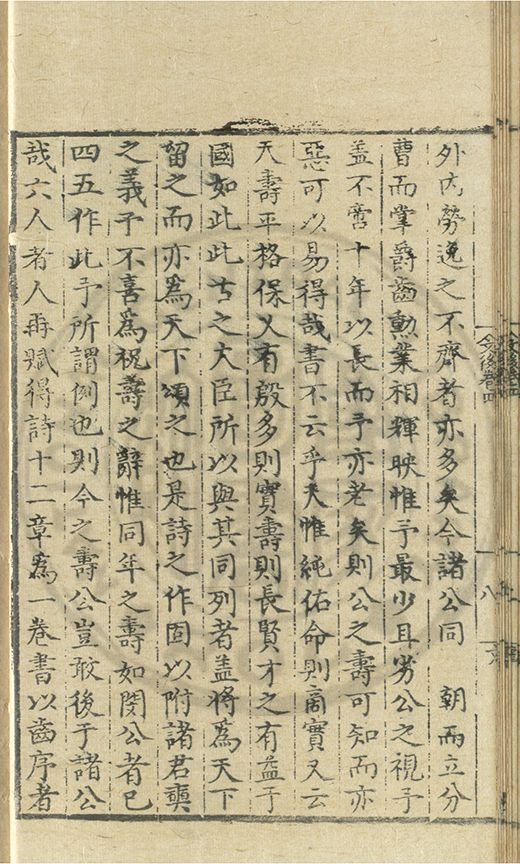 外内勞逸之不齊者亦多矣今諸公同 朝而立分
曹而掌爵齒勲業相輝映惟予最少且劣公之視予
盖不啻十年以長而予亦老矣則公之壽可知而亦
惡可以易得哉書不云乎天惟純佑命則商實又云
天壽平格保乂有殷多則實壽則長賢才之有益于
國如此此古之大臣所以與其同列者盖將為天下
留之而亦為天下頌之也是詩之作固以附諸君奭
之義予不喜爲祝壽之辭惟同年之壽如閔公者已
四五作此予所謂例也則今之壽公豈敢後于諸公
哉六人者人再賦得詩十二章爲一卷書以齒序者
後卷四
八